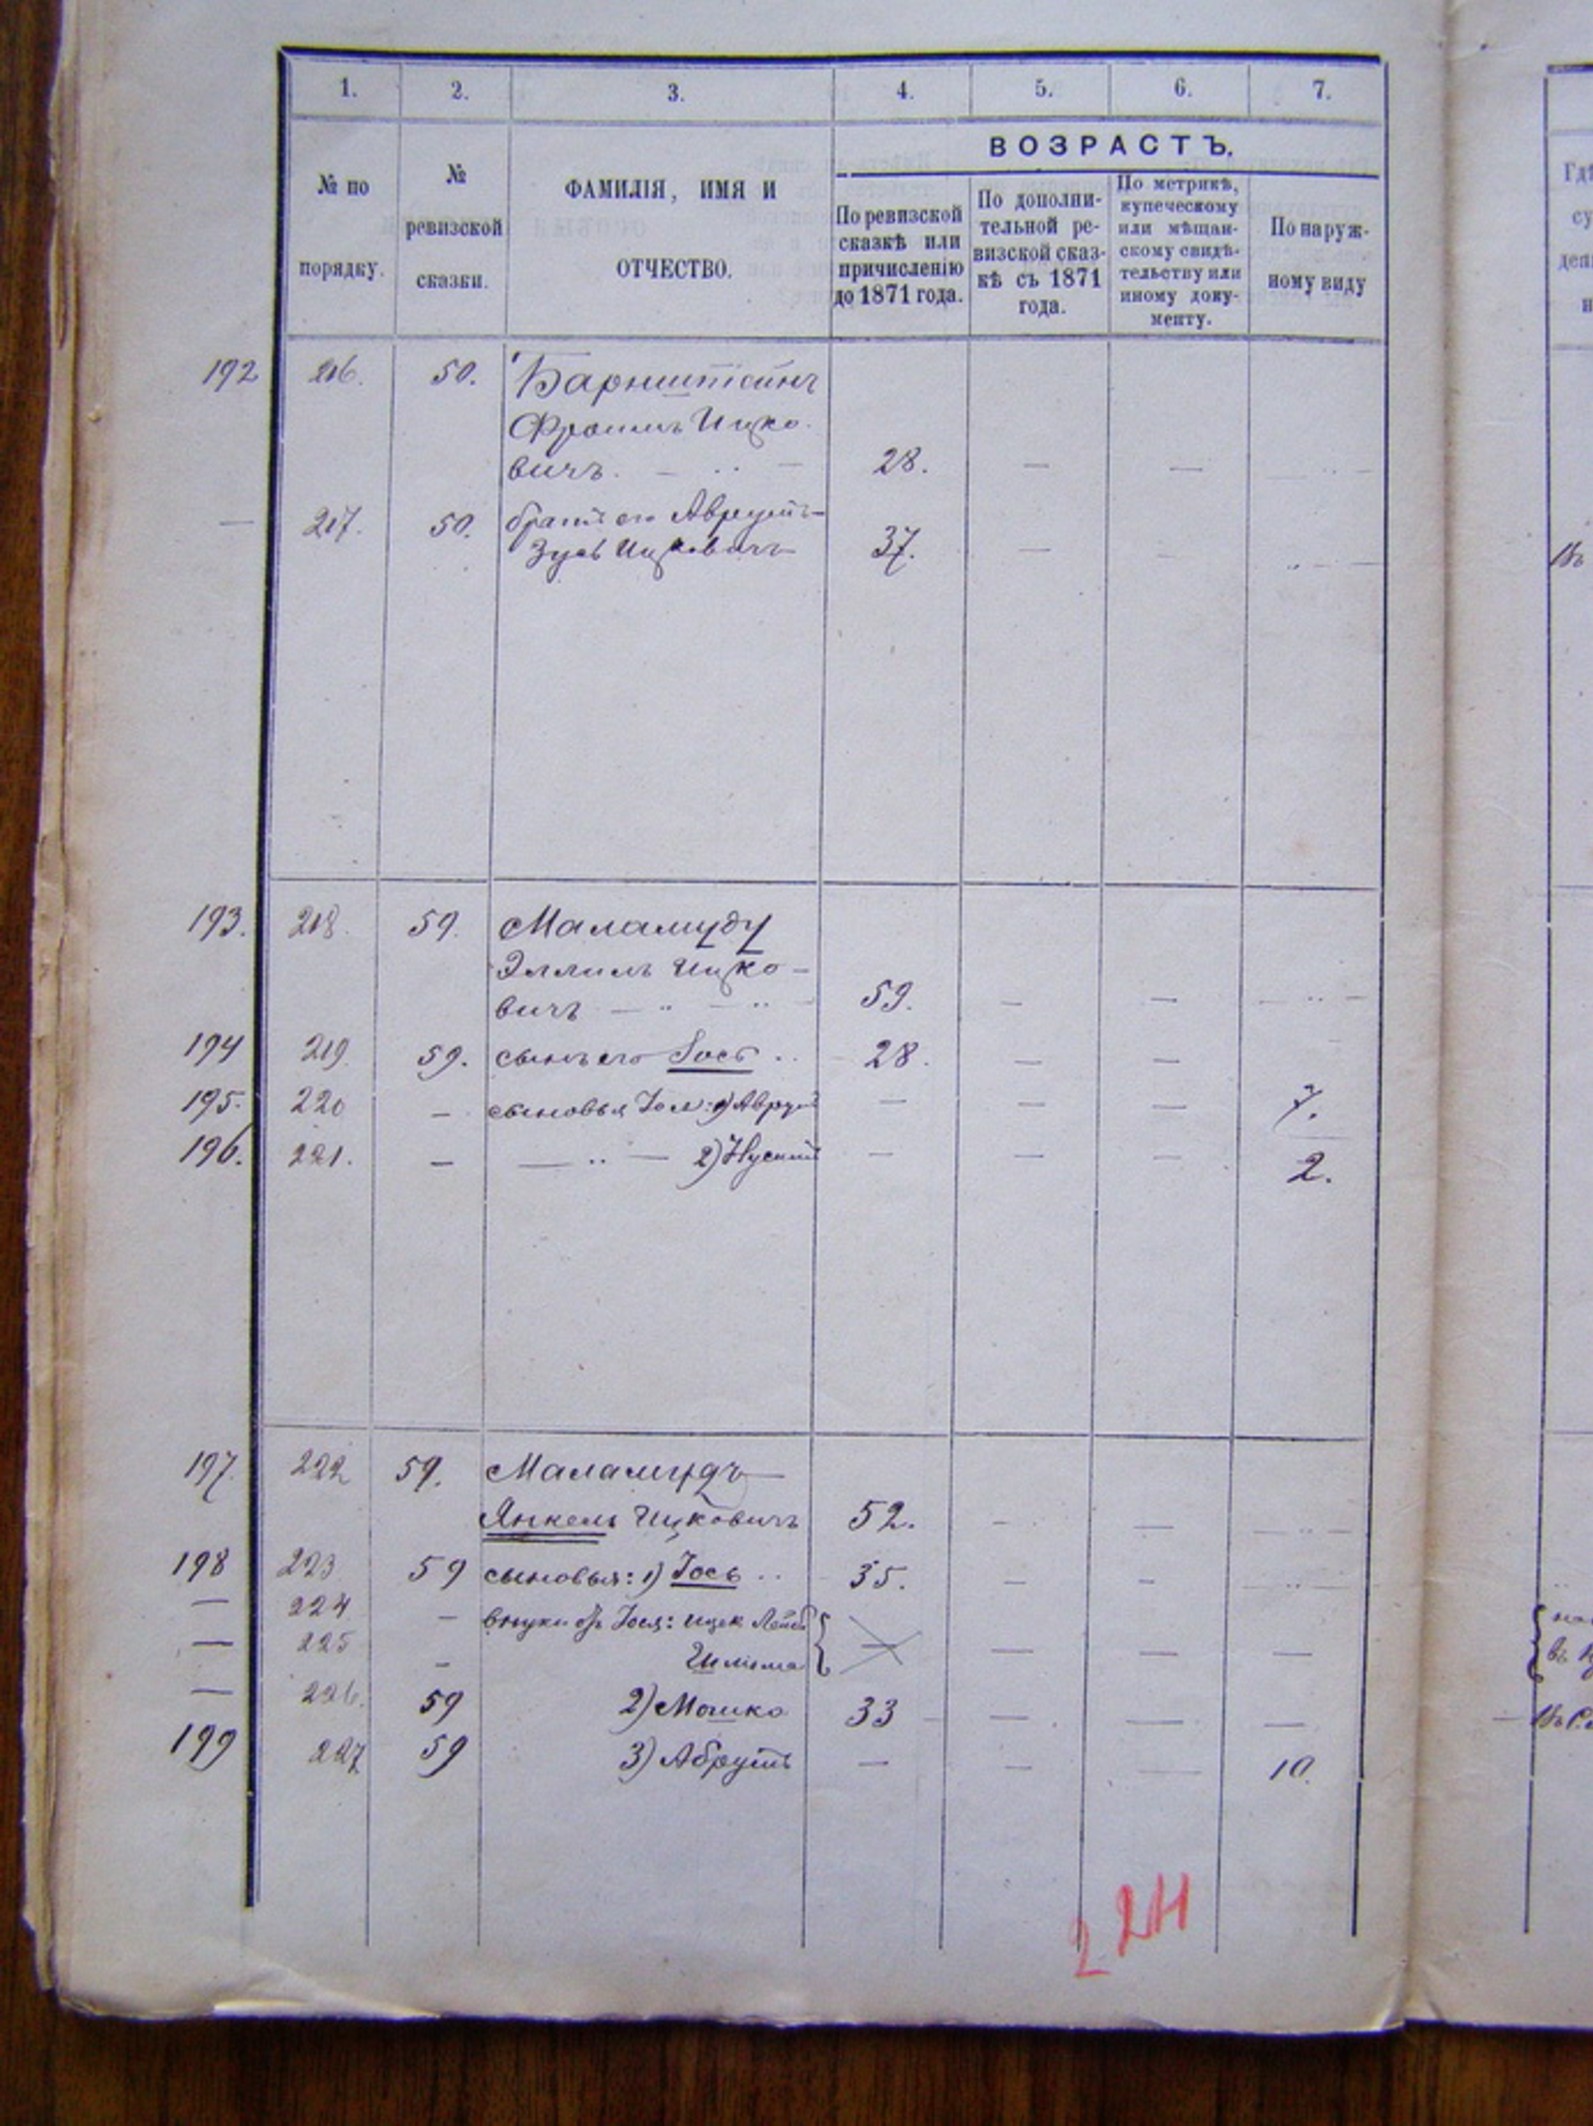 1. 2. 3. 4. 5. 6. 7.
№ по порядку.
№ ревизской сказки.
ФАМИЛІЯ, ИМЯ И
ОТЧЕСТВО.
ВОЗРАСТЪ.
По ревизской
сказкѣ или
причисленію
до 1871 года.
По дополни-
тельной ре-
визской сказ-
кѣ съ 1871
года.
По метрикѣ,
купеческому
или мѣщан-
скому свидѣ-
тельству или
иному доку-
менту.
По наруж-
ному виду
192 216. 50. Барнштейнъ
Фроимъ Ицко-
вичъ. — 28. — — —
— 217. 50. братъ его Аврумъ-
Зусь Ицковичъ 37. — — —
193. 218. 59. Маламуду
Эллимъ Ицко-
вичъ — 59. — — —
194 219 59. сынъ его Іось 28. — —
195. 220 — сыновья Іося: 1) Аврумъ — — — 7.
196. 221. — — 2) Нусинъ — — — 2.
197. 222 59. Маламудъ
Янкель Ицковичъ 52. — — —
198 223 59 сыновья: 1) Іось 35. — — —
— 224 — внуки отъ Іося: Ицек Лейб
— 225 — Шлiома — — — —
— 226. 59 2) Мошко 33 — — —
199 227 59 3) Абрумъ — — — 10.
Гдѣ
су
ден
н
Въ